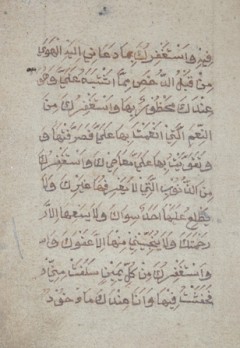 فيه واستغفرك بما دعاني اليه الهوى
من قبل الرخص مما اشتبه علي وهو
عندك محظور بها واستغفرك من
النعم التي انعمت بها علي فصرفتها و
وتقويت بها على معاصيك واستغفرك
من الذنوب التي لا يغفرها غيرك ولا
يطلع عليها احد سواك ولا يسعها الا
رحمتك ولا ينجيني منها الا عفوك و
واستغفرك من كل يمين سلفت مني
فحنثت فيها وانا عندك ماخوذ